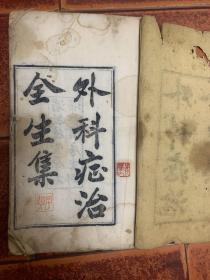 外科症治
全生集